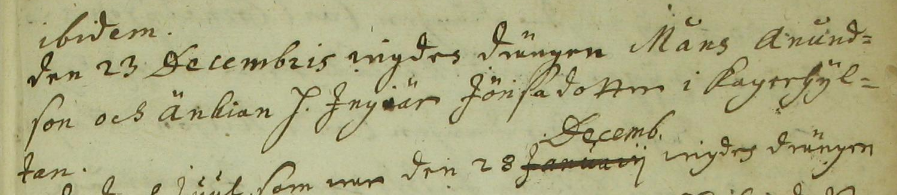 ibidem.
den 23 Decembris wigdes drängen Måns Anund=
son och änkian H. Ingiär Jönsadotter i Kagerhyl=
tan.
Decemb.
Juul, som war den 28 Januarij wigdes drängen